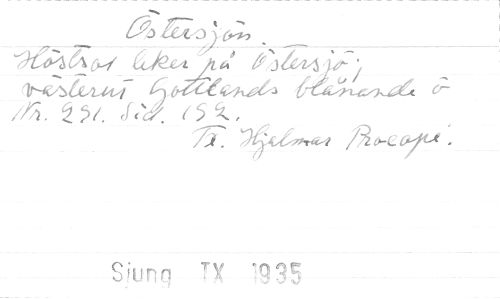 Östersjön.
Höstsol leker på Östersjö,
västerut Gottlands blånande ö
Nr. 291. Sid. 192.
Tx. Hjalmar Procopé.
Sjung IX 1935